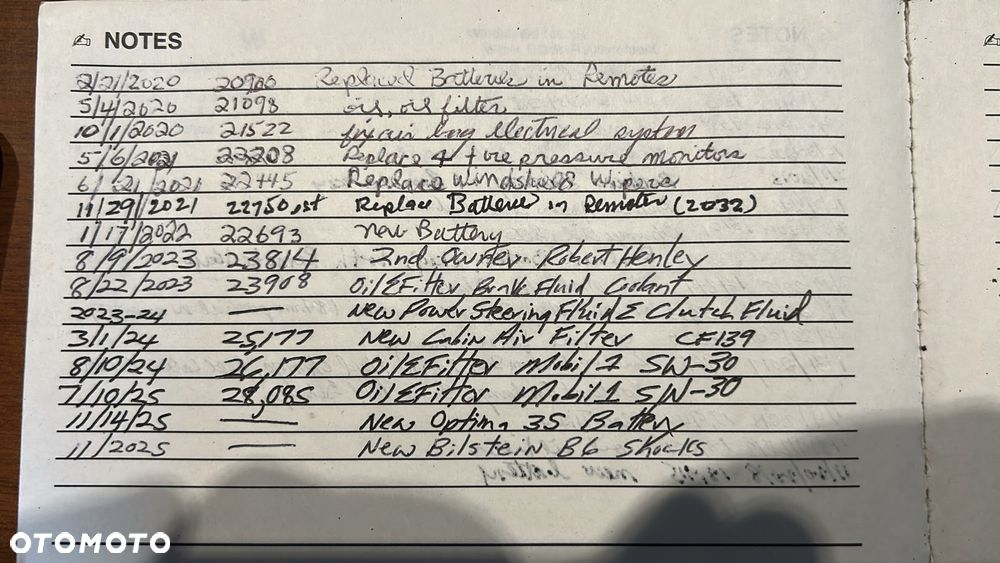 NOTES
2/21/2020 20900 Replaced Batteries in Remotes
5/4/2020 21098 oil, oil filter
10/1/2020 21522 fix air bag electrical system
5/6/2021 22208 Replace 4 tire pressure monitors
6/21/2021 22445 Replace Windshield Wipers
11/29/2021 22750 Replace Batteries in Remotes (2032)
1/17/2022 22693 new Battery
8/9/2023 23814 2nd owner Robert Henley
8/22/2023 23908 Oil & Filter Brake Fluid Coolant
2023-24 — New Power Steering Fluid & Clutch Fluid
3/1/24 25,177 New Cabin Air Filter CF139
8/10/24 26,177 Oil & Filter Mobil 1 5W-30
7/10/25 28,085 Oil & Filter Mobil 1 5W-30
11/14/25 — New Optima 35 Battery
11/2025 — New Bilstein B6 Shocks
OTOMOTO